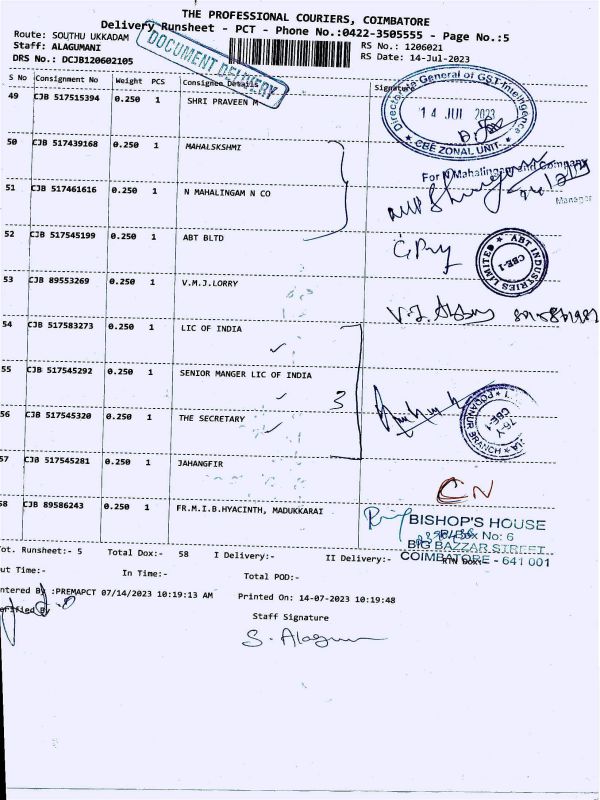 THE PROFESSIONAL COURIERS, COIMBATORE
Delivery Runsheet - PCT - Phone No.:0422-3505555 - Page No.:5
Route: SOUTHU UKKADAM
Staff: ALAGUMANI
DRS No.: DCJB120602105
DOCUMENT DELIVERY
RS No.: 1206021
RS Date: 14-Jul-2023
S No Consignment No Weight PCS Consignee Details Signature
49 CJB 517515394 0.250 1 SHRI PRAVEEN M
Directorate General of GST Intelligence
14 JUL 2023
CBE ZONAL UNIT
50 CJB 517439168 0.250 1 MAHALSKSHMI
For N Mahalingam and Company
51 CJB 517461616 0.250 1 N MAHALINGAM N CO
Manager
52 CJB 517545199 0.250 1 ABT BLTD
ABT INDUSTRIES LIMITED
CBE-1
53 CJB 89553269 0.250 1 V.M.J.LORRY
54 CJB 517583273 0.250 1 LIC OF INDIA
55 CJB 517545292 0.250 1 SENIOR MANGER LIC OF INDIA
3
56 CJB 517545320 0.250 1 THE SECRETARY
PODANUR BRANCH
CBE-1
57 CJB 517545281 0.250 1 JAHANGFIR
CN
58 CJB 89586243 0.250 1 FR.M.I.B.HYACINTH, MADUKKARAI
BISHOP'S HOUSE
Box No: 6
BIG BAZZAR STREET
COIMBATORE - 641 001
Tot. Runsheet:- 5 Total Dox:- 58 I Delivery:- II Delivery:- RTN Dox:-
Out Time:- In Time:- Total POD:-
Entered By :PREMAPCT 07/14/2023 10:19:13 AM Printed On: 14-07-2023 10:19:48
Verified By
Staff Signature